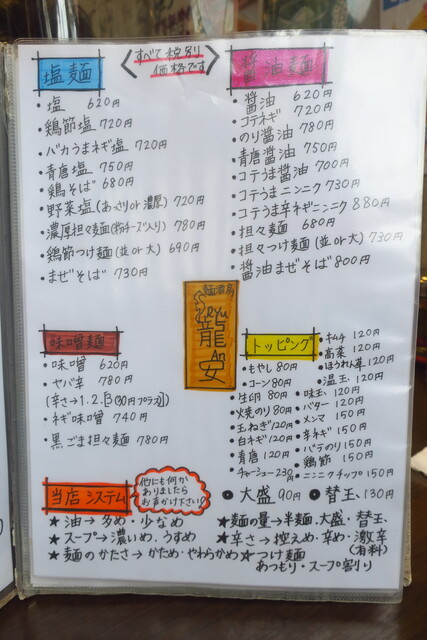 塩麺
すべて税別り
価格です
・塩 620円
・鶏節塩 720円
・バカうまネギ塩 720円
・青唐塩 750円
・鶏そば 680円
・野菜塩(あっさりor濃厚) 720円
・濃厚担々麺(粉チーズ入り) 780円
・鶏節つけ麺(並or大) 690円
・まぜそば 730円
醤油麺
・醤油 620円
・コテネギ 720円
・のり醤油 780円
・青唐醤油 750円
・コテうま醤油 700円
・コテうまニンニク 730円
・コテうま辛ネギニンニク 880円
・担々麺 680円
・担々つけ麺(並or大) 730円
・醤油まぜそば 800円
Ryu
龍
An
安
味噌麺
・味噌 620円
・ヤバ辛 780円
(辛さ→1.2.3(30円プラス))
・ネギ味噌 740円
・黒ごま担々麺 780円
トッピング
・もやし 80円
・コーン 80円
・生卵 80円
・焼のり 80円
・玉ねぎ 120円
・白ネギ 120円
・青唐 120円
・チャーシュー 230円
・キムチ 120円
・高菜 120円
・ほうれん草 120円
・温玉 120円
・味玉 120円
・バター 120円
・メンマ 150円
・辛ネギ 150円
・バテのり 150円
・鶏節 150円
・ニンニクチップ 150円
当店システム
他にも何か
ありましたら
お声かけ下さい!
● 大盛 90円 ● 替玉 130円
★油→多め・少なめ
★スープ→濃いめ.うすめ
★麺のかたさ→かため・やわらかめ
★麺の量→半麺.大盛・替玉
★辛さ→控え め.辛め・激辛
(有料)
★つけ麺
あつもり・スープ割り